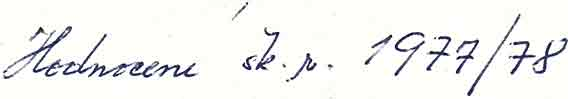 Hodnocení šk. r. 1977/78